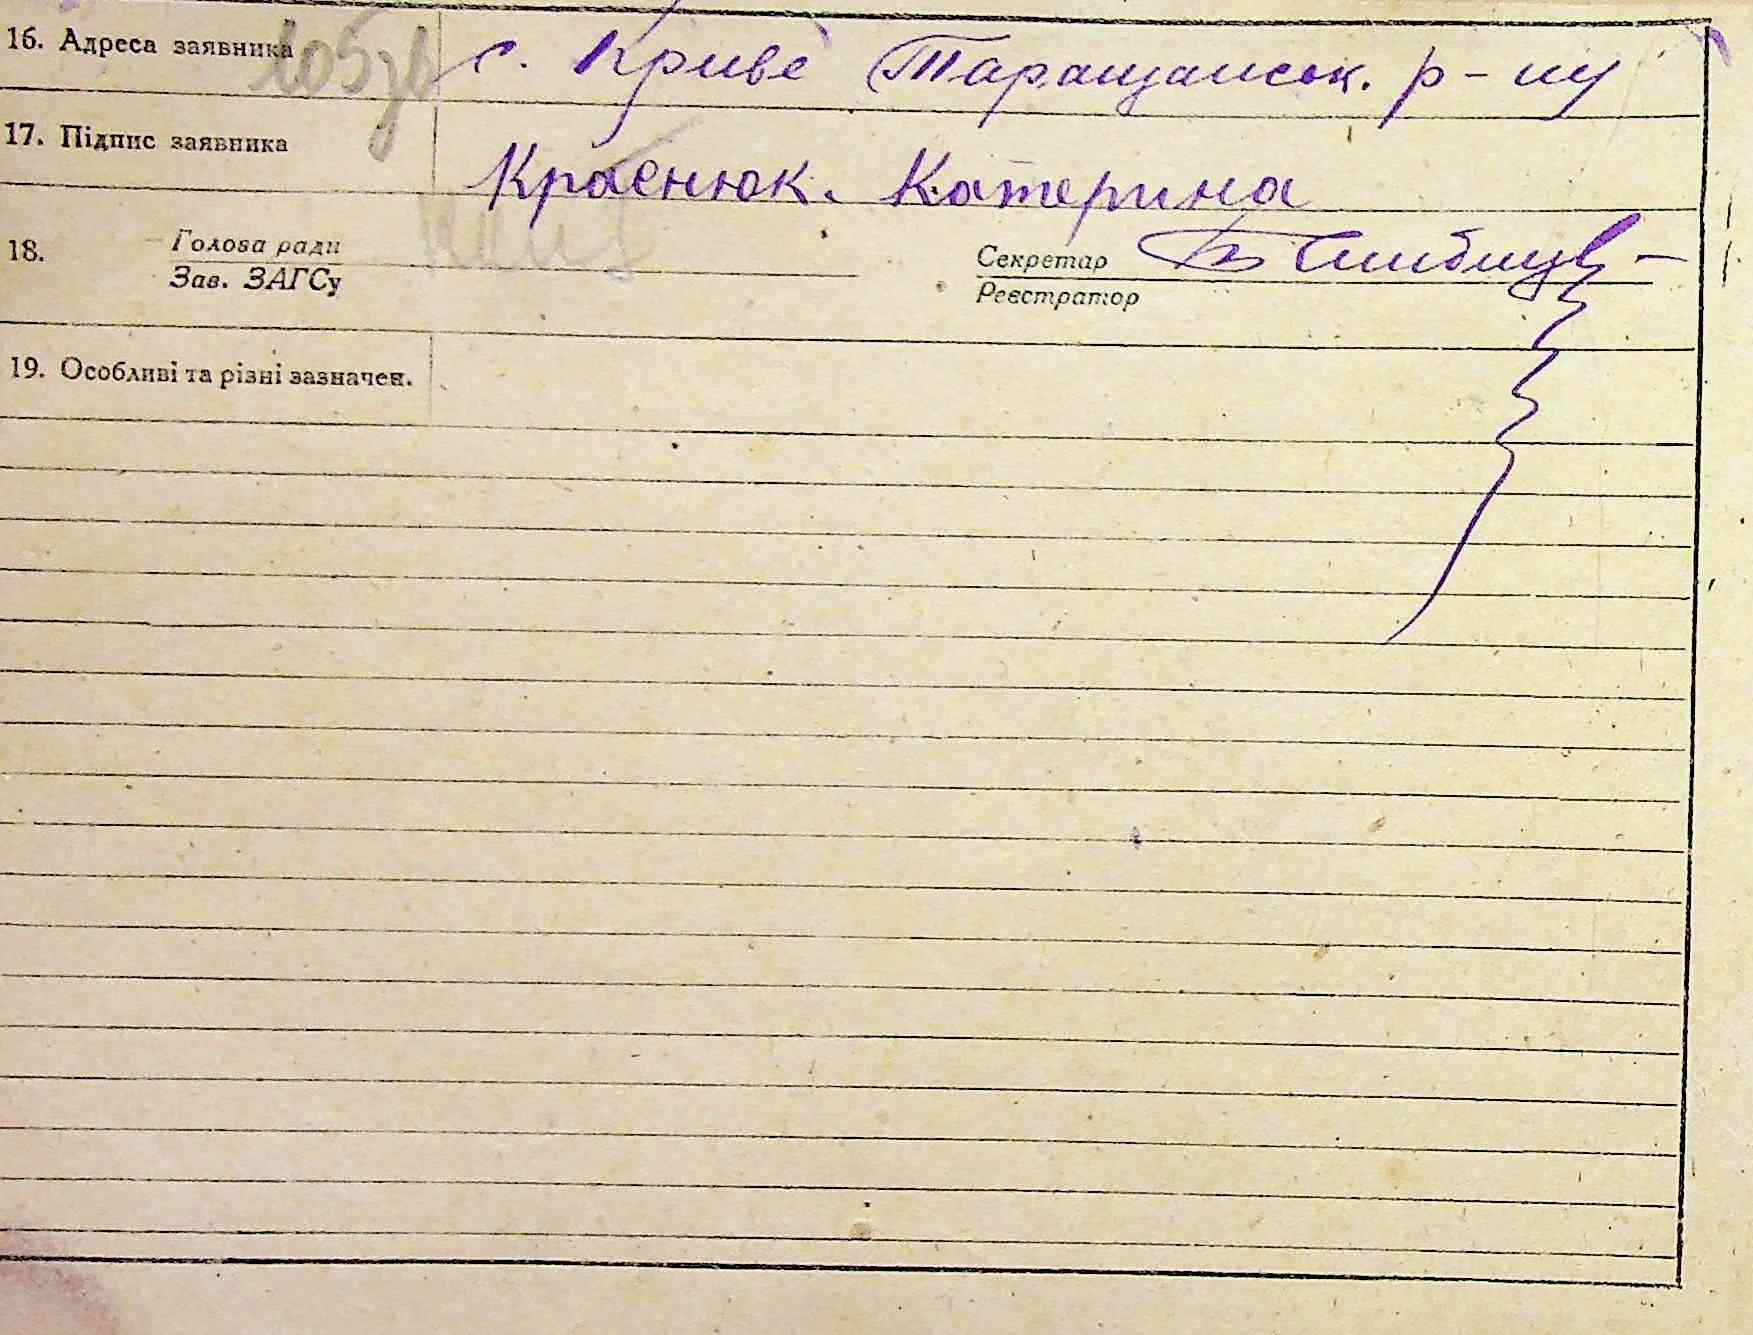 16. Адреса заявника с. Криве Таращанськ. р-ну
17. Підпис заявника
Краснюк. Катерина
18. Голова ради Секретар
Зав. ЗАГСу Реєстратор
19. Особливі та різні зазначен.